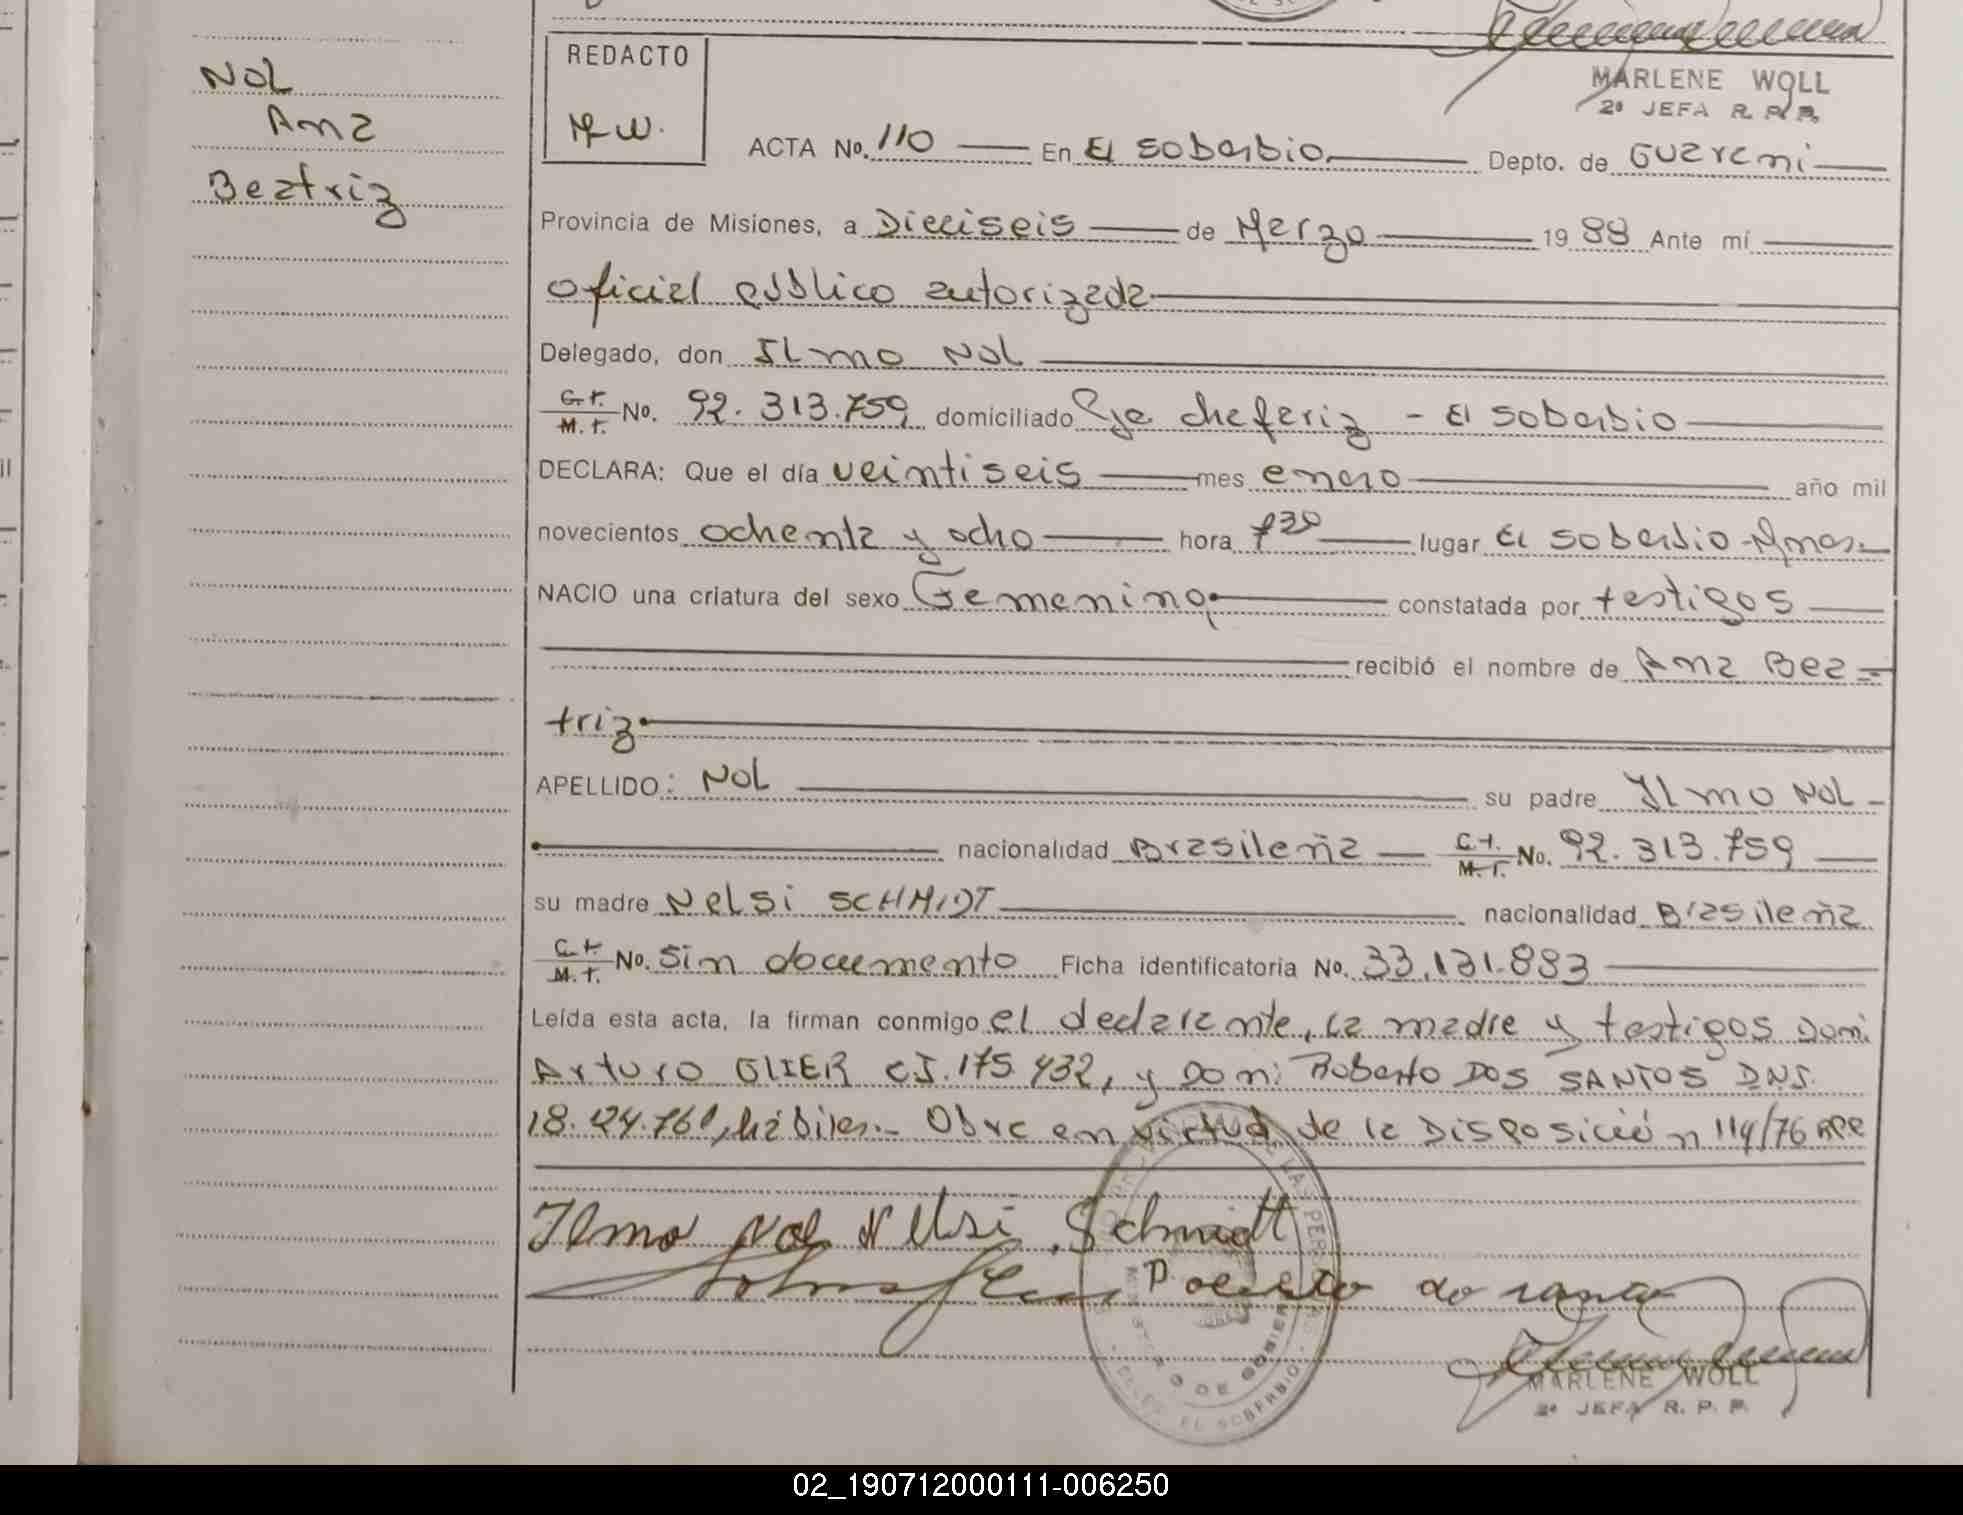 MARLENE WOLL
2º JEFA R. P. P.
NOL
Ana
Beatriz
REDACTO
M.W.
ACTA No. 110 En El Soberbio Depto. de Guarani
Provincia de Misiones, a Dieciseis de Marzo 1988 Ante mí
oficial público autorizada
Delegado, don Ilmo NOL
C.I. / M.I. No. 92.313.759 domiciliado Pje chafariz - El Soberbio
DECLARA: Que el día veintiseis mes enero año mil
novecientos ochenta y ocho hora 7³⁰ lugar El Soberbio - Mnes.-
NACIO una criatura del sexo Femenino constatada por testigos
recibió el nombre de Ana Bea=
triz
APELLIDO: NOL su padre Ilmo NOL -
nacionalidad Brasileña C.I. / M.I. No. 92.313.759
su madre Nelsi SCHMIDT nacionalidad Brasileña
C.I. / M.I. No. Sin documento Ficha identificatoria No. 33.131.883
Leída esta acta, la firman conmigo el declarante, la madre y testigos Don:
Arturo GLIER CI. 175.432, y Don: Roberto DOS SANTOS D.N.I.
hábiles.- Obra en virtud de la Disposición 114/76 RPP
Ilmo Nol Nelsi Schmidt
MARLENE WOLL
2º JEFA R. P. P.
EL SOBERBIO
02_190712000111-006250